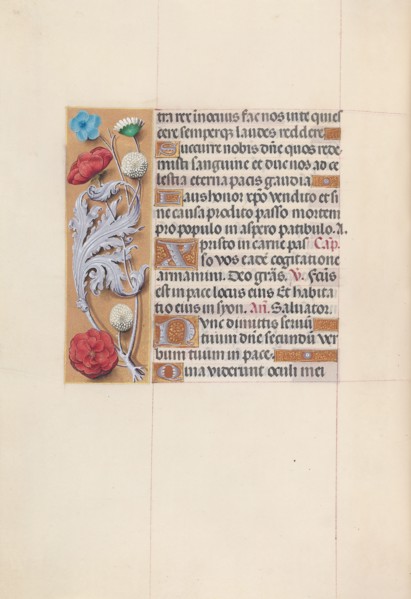 tra rex innocuus fac nos in te quies
cere semperq; laudes reddere
Sucurre nobis dñe quos rede
misti sanguine et duc nos ad ce
lestia eterna pacis gaudia
Laus honor xpo vendito et si
ne causa prodito passo mortem
pro populo in aspero patibulo. A.
Xpristo in carne pas Cap.
so vos eadē cogitatione
armamini. Deo grās. V. Fctūs
est in pace locus eius Et habita
tio eius in syon. Añ. Saluator.
Nunc dimittis seruū
tuum dñe secundū ver
bum tuum in pace.
Quia viderunt oculi mei